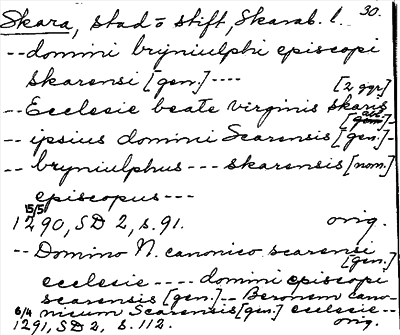 Skara, stad o stift, Skarab. l. 30.
-- domini bryniulphi episcopi
skarensi [gen.] ---- [2 ggr]
-- Ecclesie beate virginis skaris [abl.]
-- ipsius domini Scarensis [gen.] -
-- bryniulphus --- skarensis [nom.]
episcopus ---
15/5
1290, SD 2, s. 91. orig.
-- Domino N. canonico scarensi [gen.]
ecclesie ---- domini episcopi
scarensis [gen.] -- Beronem cano-
nicum Scarensis [gen.] ecclesie --
6/4
1291, SD 2, s. 112. orig.